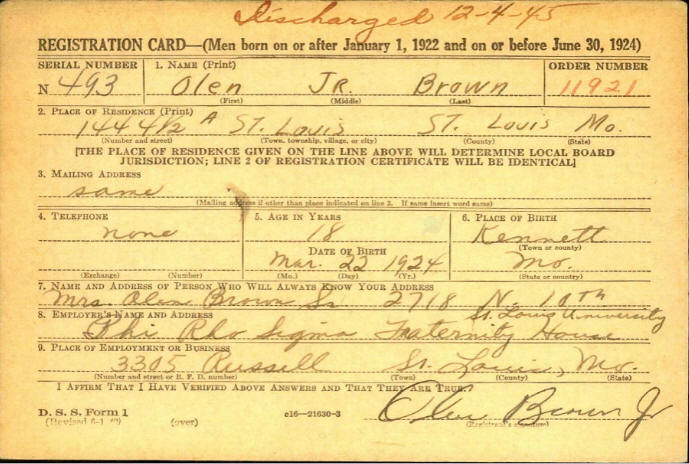 Discharged 12-4-45
REGISTRATION CARD—(Men born on or after January 1, 1922 and on or before June 30, 1924)
SERIAL NUMBER 1. NAME (Print) ORDER NUMBER
N 493 Olen JR. Brown 11921
(First) (Middle) (Last)
2. PLACE OF RESIDENCE (Print)
1444½ A ST. Louis ST. Louis Mo.
(Number and street) (Town, township, village, or city) (County) (State)
[THE PLACE OF RESIDENCE GIVEN ON THE LINE ABOVE WILL DETERMINE LOCAL BOARD
JURISDICTION; LINE 2 OF REGISTRATION CERTIFICATE WILL BE IDENTICAL]
3. MAILING ADDRESS
same
(Mailing address if other than place indicated on line 2. If same insert word same)
4. TELEPHONE 5. AGE IN YEARS 6. PLACE OF BIRTH
none 18 Kennett
(Town or county)
DATE OF BIRTH
Mar. 22 1924 Mo.
(Exchange) (Number) (Mo.) (Day) (Yr.) (State or country)
7. NAME AND ADDRESS OF PERSON WHO WILL ALWAYS KNOW YOUR ADDRESS
Mrs. Olen Brown Sr 2718 N. 10th
8. EMPLOYER'S NAME AND ADDRESS St. Louis University
Phi Rho Sigma Fraternity House
9. PLACE OF EMPLOYMENT OR BUSINESS
3305 Russell St. Louis, Mo.
(Number and street or R. F. D. number) (Town) (County) (State)
I AFFIRM THAT I HAVE VERIFIED ABOVE ANSWERS AND THAT THEY ARE TRUE.
Olen Brown Jr
D. S. S. Form 1 c16—21630-3 (Registrant's signature)
(Revised 6-1 (over)